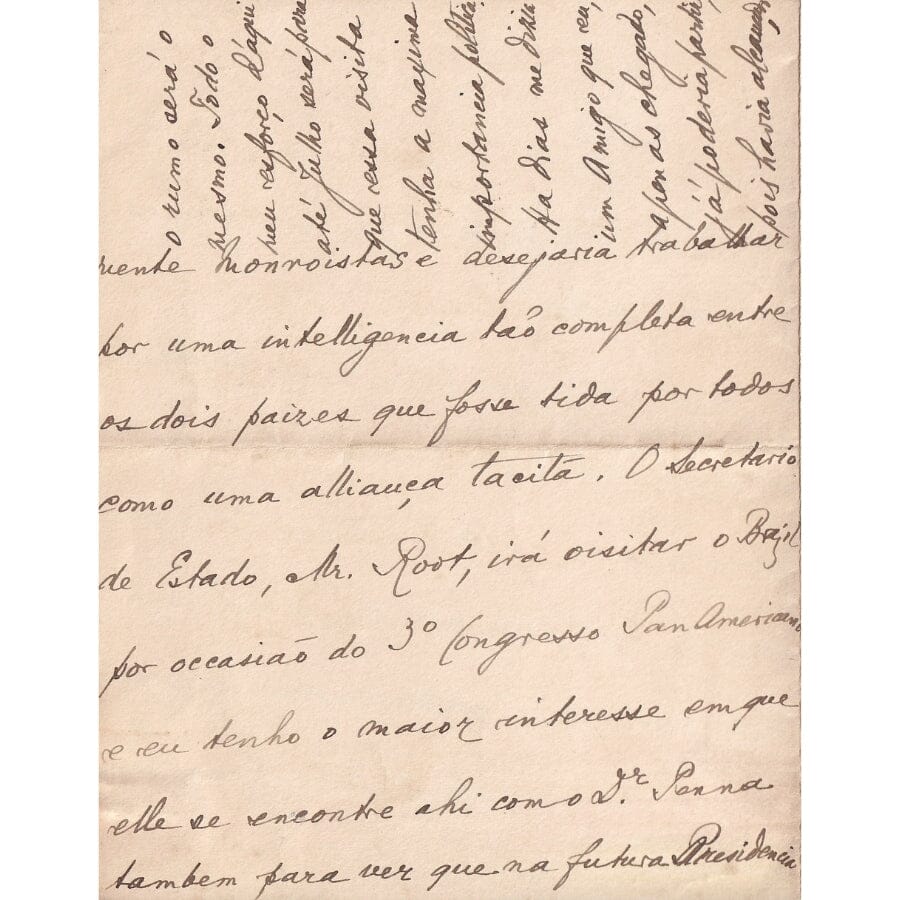 mente Monroistas e desejaria trabalhar
por uma intelligencia taõ completa entre
os dois paizes que fosse tida por todos
como uma alliança tacita. O Secretario
de Estado, Mr. Root, irá visitar o Brazil
por occasiaõ do 3º Congresso Pan Americano
e eu tenho o maior interesse em que
elle se encontre ahi com o Dr. Penna
tambem para ver que na futura Presidencia
o rumo será o
mesmo. Todo o
meu esforço d'aqui
até Julho será para
que essa visita
tenha a maxima
importancia politica.
Ha dias me disse
um Amigo que eu,
apenas chegado,
já poderia partir,
pois havia alcançado,